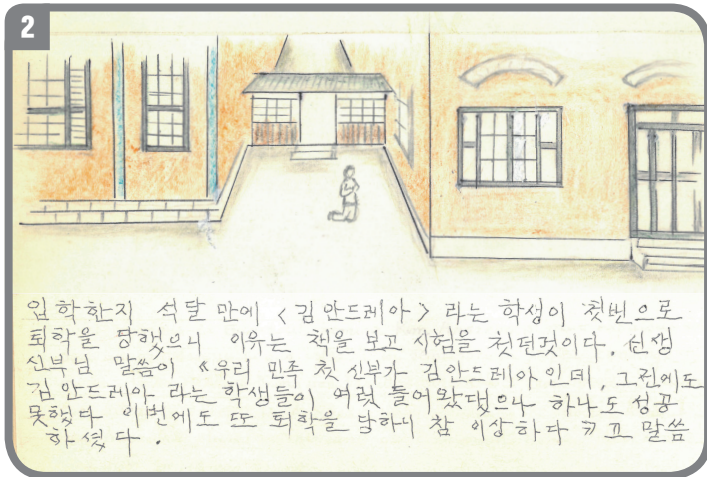 2
입학한지 석달 만에 <김안드레아> 라는 학생이 첫번으로
퇴학을 당했으니 이유는 책을 보고 시험을 첫던것이다. 선생
신부님 말씀이 《우리 민족 첫 신부가 김안드레아 인데, 그전에도
김안드레아 라는 학생들이 여럿 들어왔댔으나 하나도 성공
못했다 이번에도 또 퇴학을 당하니 참 이상하다 고 말씀
하셨다.